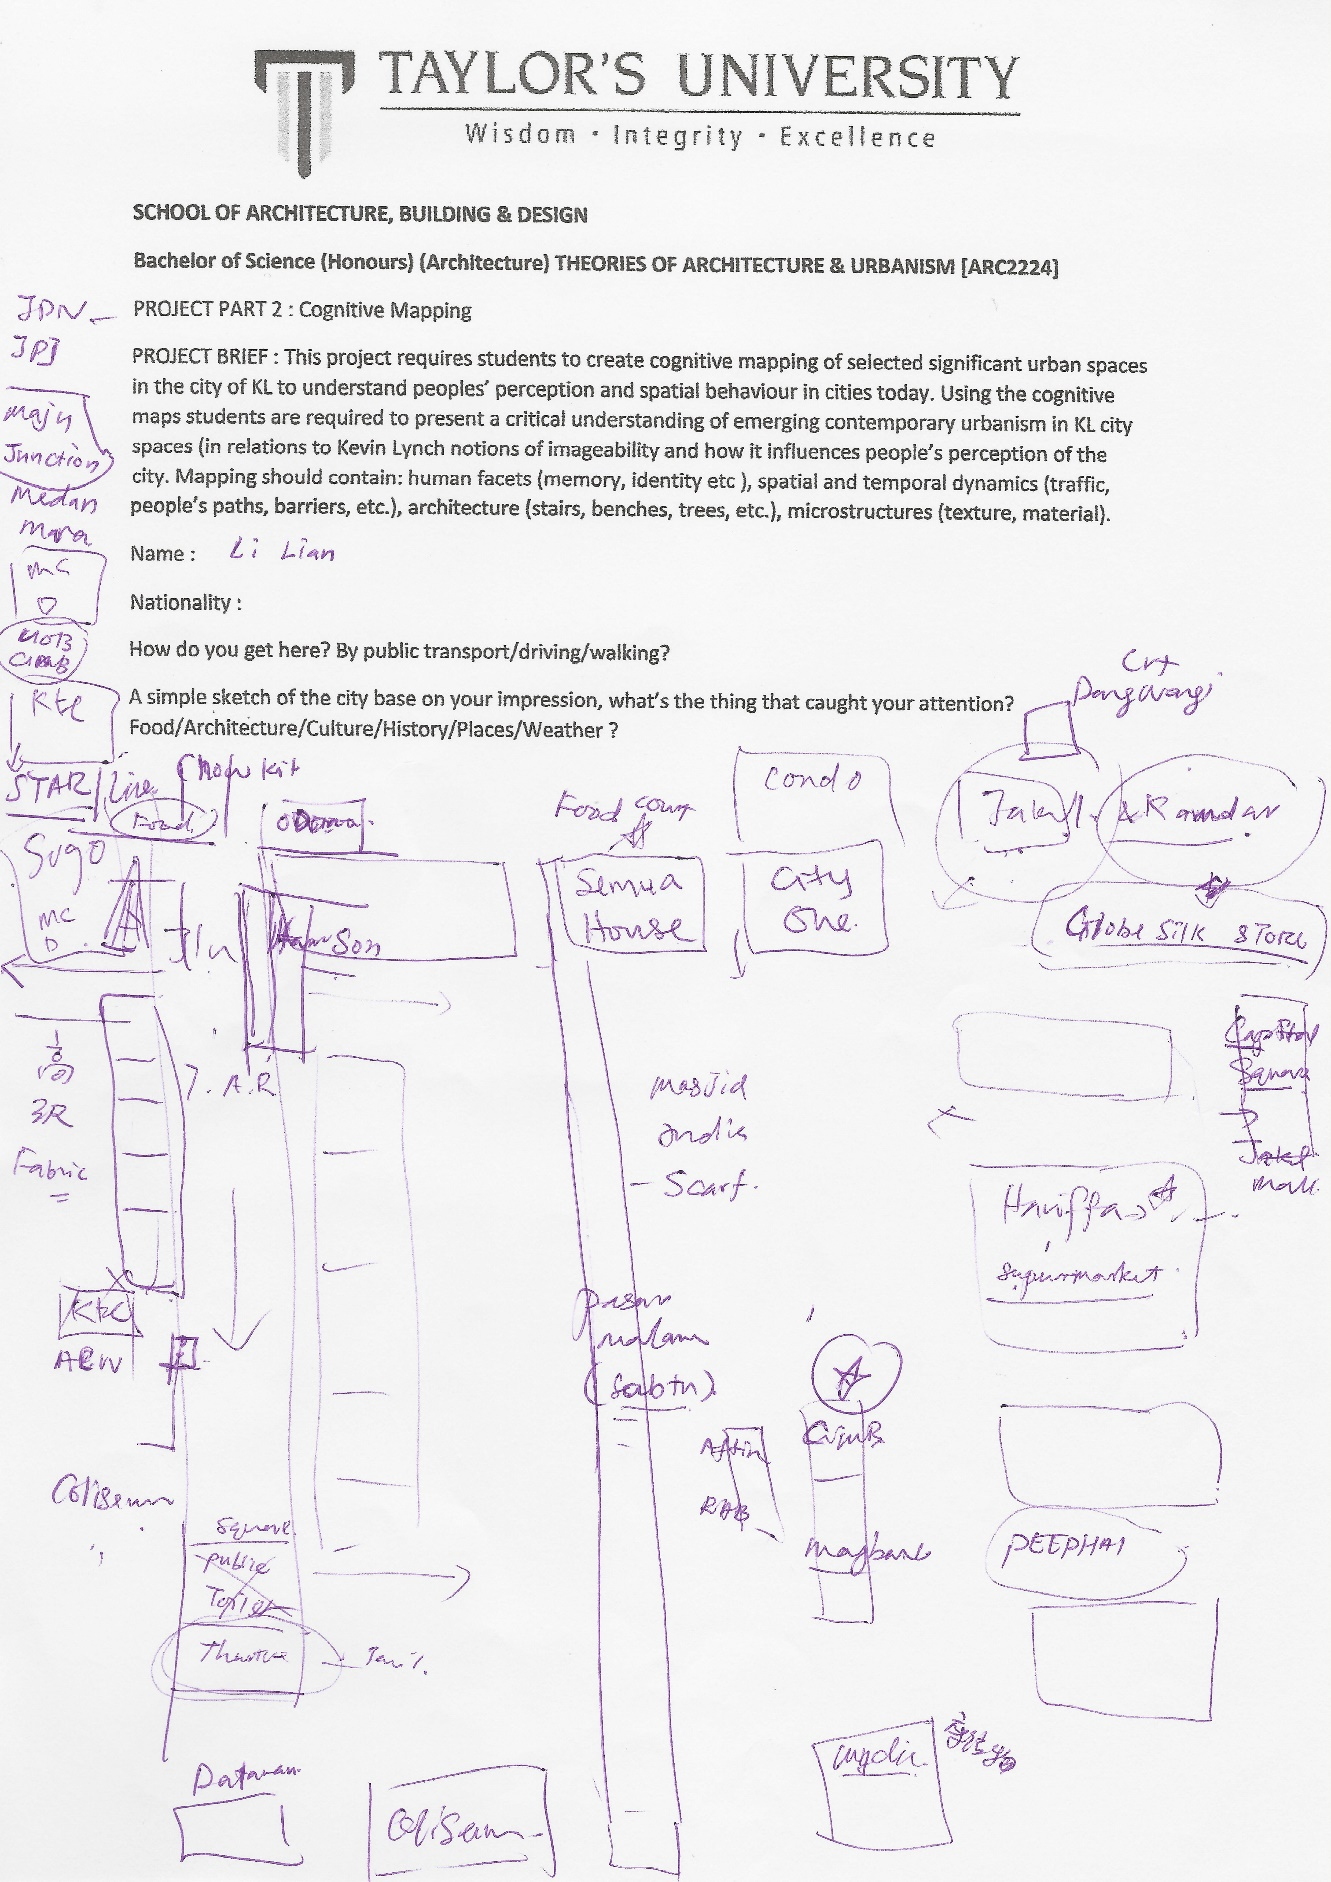 TAYLOR'S UNIVERSITY
Wisdom · Integrity · Excellence
SCHOOL OF ARCHITECTURE, BUILDING & DESIGN
Bachelor of Science (Honours) (Architecture) THEORIES OF ARCHITECTURE & URBANISM [ARC2224]
JPN
PROJECT PART 2 : Cognitive Mapping
JPJ
PROJECT BRIEF : This project requires students to create cognitive mapping of selected significant urban spaces
in the city of KL to understand peoples' perception and spatial behaviour in cities today. Using the cognitive
maps students are required to present a critical understanding of emerging contemporary urbanism in KL city
spaces (in relations to Kevin Lynch notions of imageability and how it influences people's perception of the
city. Mapping should contain: human facets (memory, identity etc ), spatial and temporal dynamics (traffic,
people's paths, barriers, etc.), architecture (stairs, benches, trees, etc.), microstructures (texture, material).
Maju
Junction
Medan
Mara
Name : Li Lian
Mc
D
Nationality :
How do you get here? By public transport/driving/walking?
A simple sketch of the city base on your impression, what's the thing that caught your attention?
Food/Architecture/Culture/History/Places/Weather ?
Dang Wangi
STAR Line
Chow kit
Food
Food cour
Condo
Jakel
Ramdan
Sogo
Mc
D
Semua
House
City
One.
Son
Globe Silk Store
T.A.R
Capitol
Square
Jakel
Mall
Fabric
Masjid
India
- Scarf.
Haniffa
supermarket
pasar
malam
(Sabtu)
Affin
CIMB
RHB
Coliseum
Square
Public
Toilet
Maybank
PEEPHAI
Theatre
Dataran
Coliseum